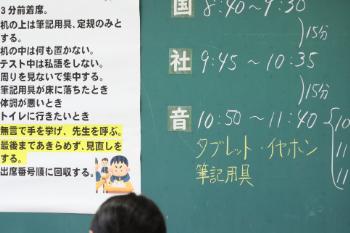 3分前着席。
机の上は筆記用具、定規のみと
する。
机の中は何も置かない。
テスト中は私語をしない。
周りを見ないで集中する。
筆記用具が床に落ちたとき
体調が悪いとき
トイレに行きたいとき
無言で手を挙げ、先生を呼ぶ。
最後まであきらめず、見直しを
する。
出席番号順に回収する。
国 8:40～9:30
15分
社 9:45～10:35
15分
音 10:50～11:40
タブレット・イヤホン
筆記用具
10
11
11